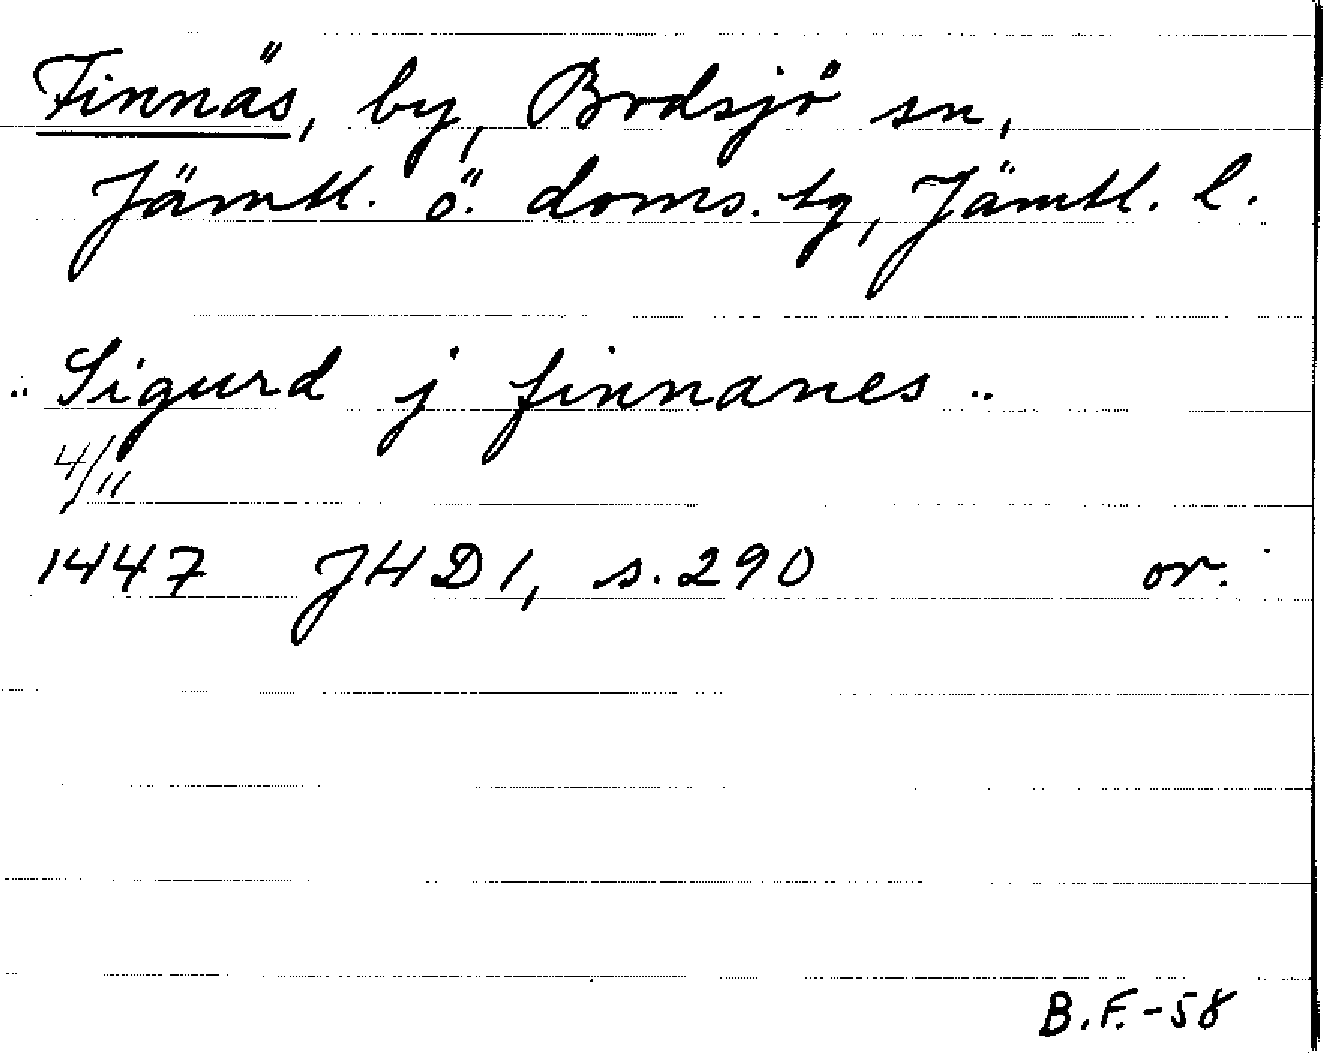 Finnäs, by, Bodsjö sn,
Jämtl. ö. doms. tg, Jämtl. l.
.. Sigurd j finnanes ..
4/11
1447 JHD 1, s. 290 or.
B.F.-58